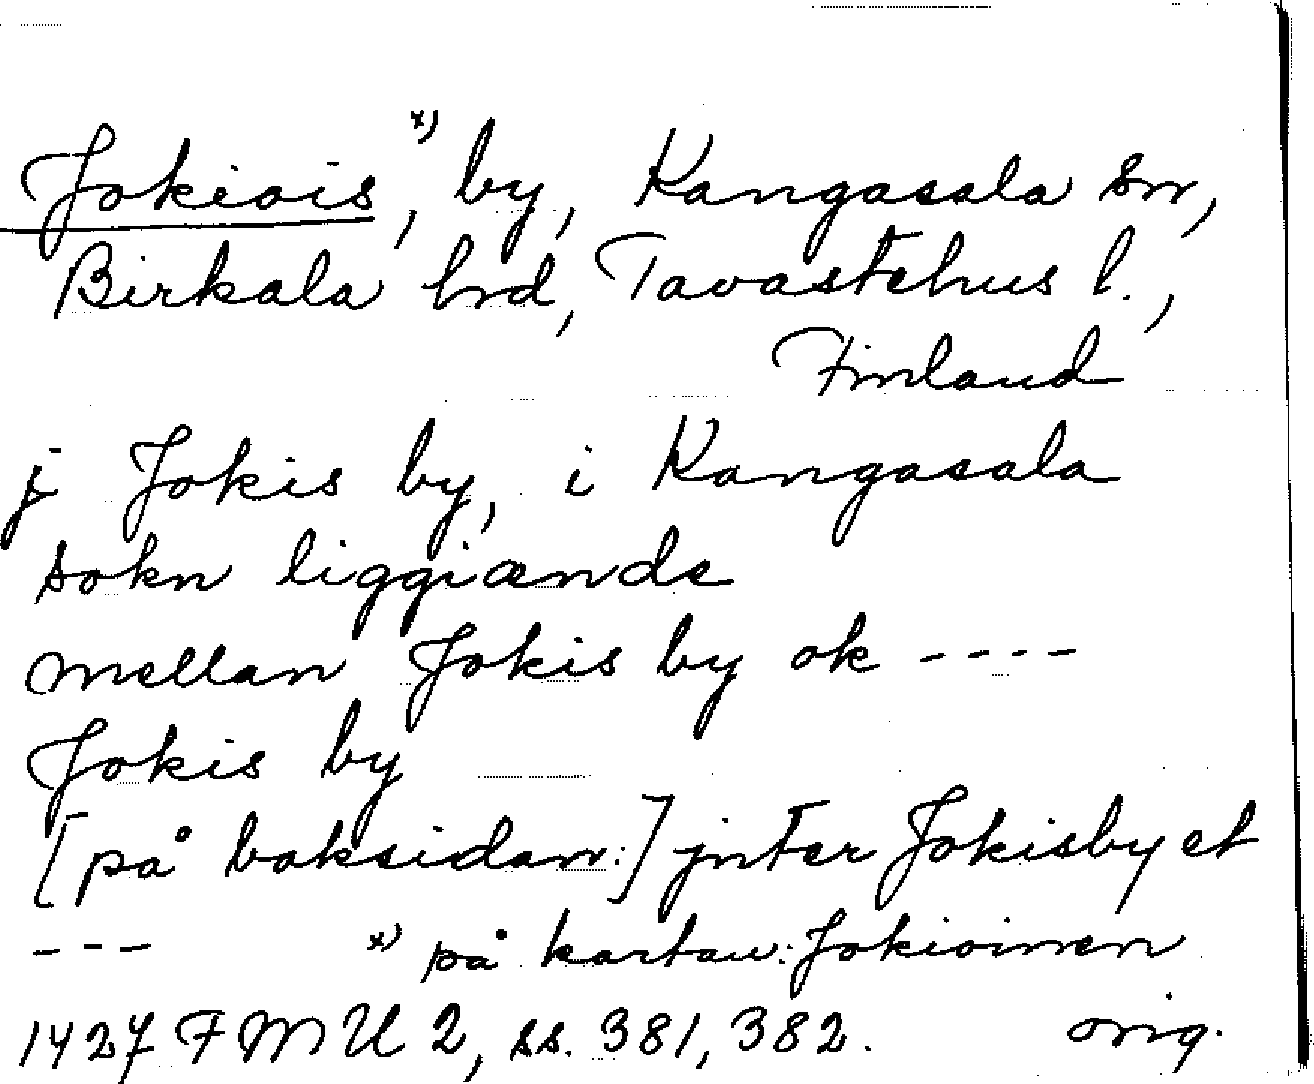 Jokiois x), by, Kangasala sn,
Birkala hrd, Tavastehus l.,
Finland
j Jokis by, i Kangasala
sokn liggiænde
mellan Jokis by ok ----
Jokis by
[på baksidan:] jnter Jokisby et
--- x) på kartan: Jokioinen
1427 FMU 2, ss. 381, 382. orig.